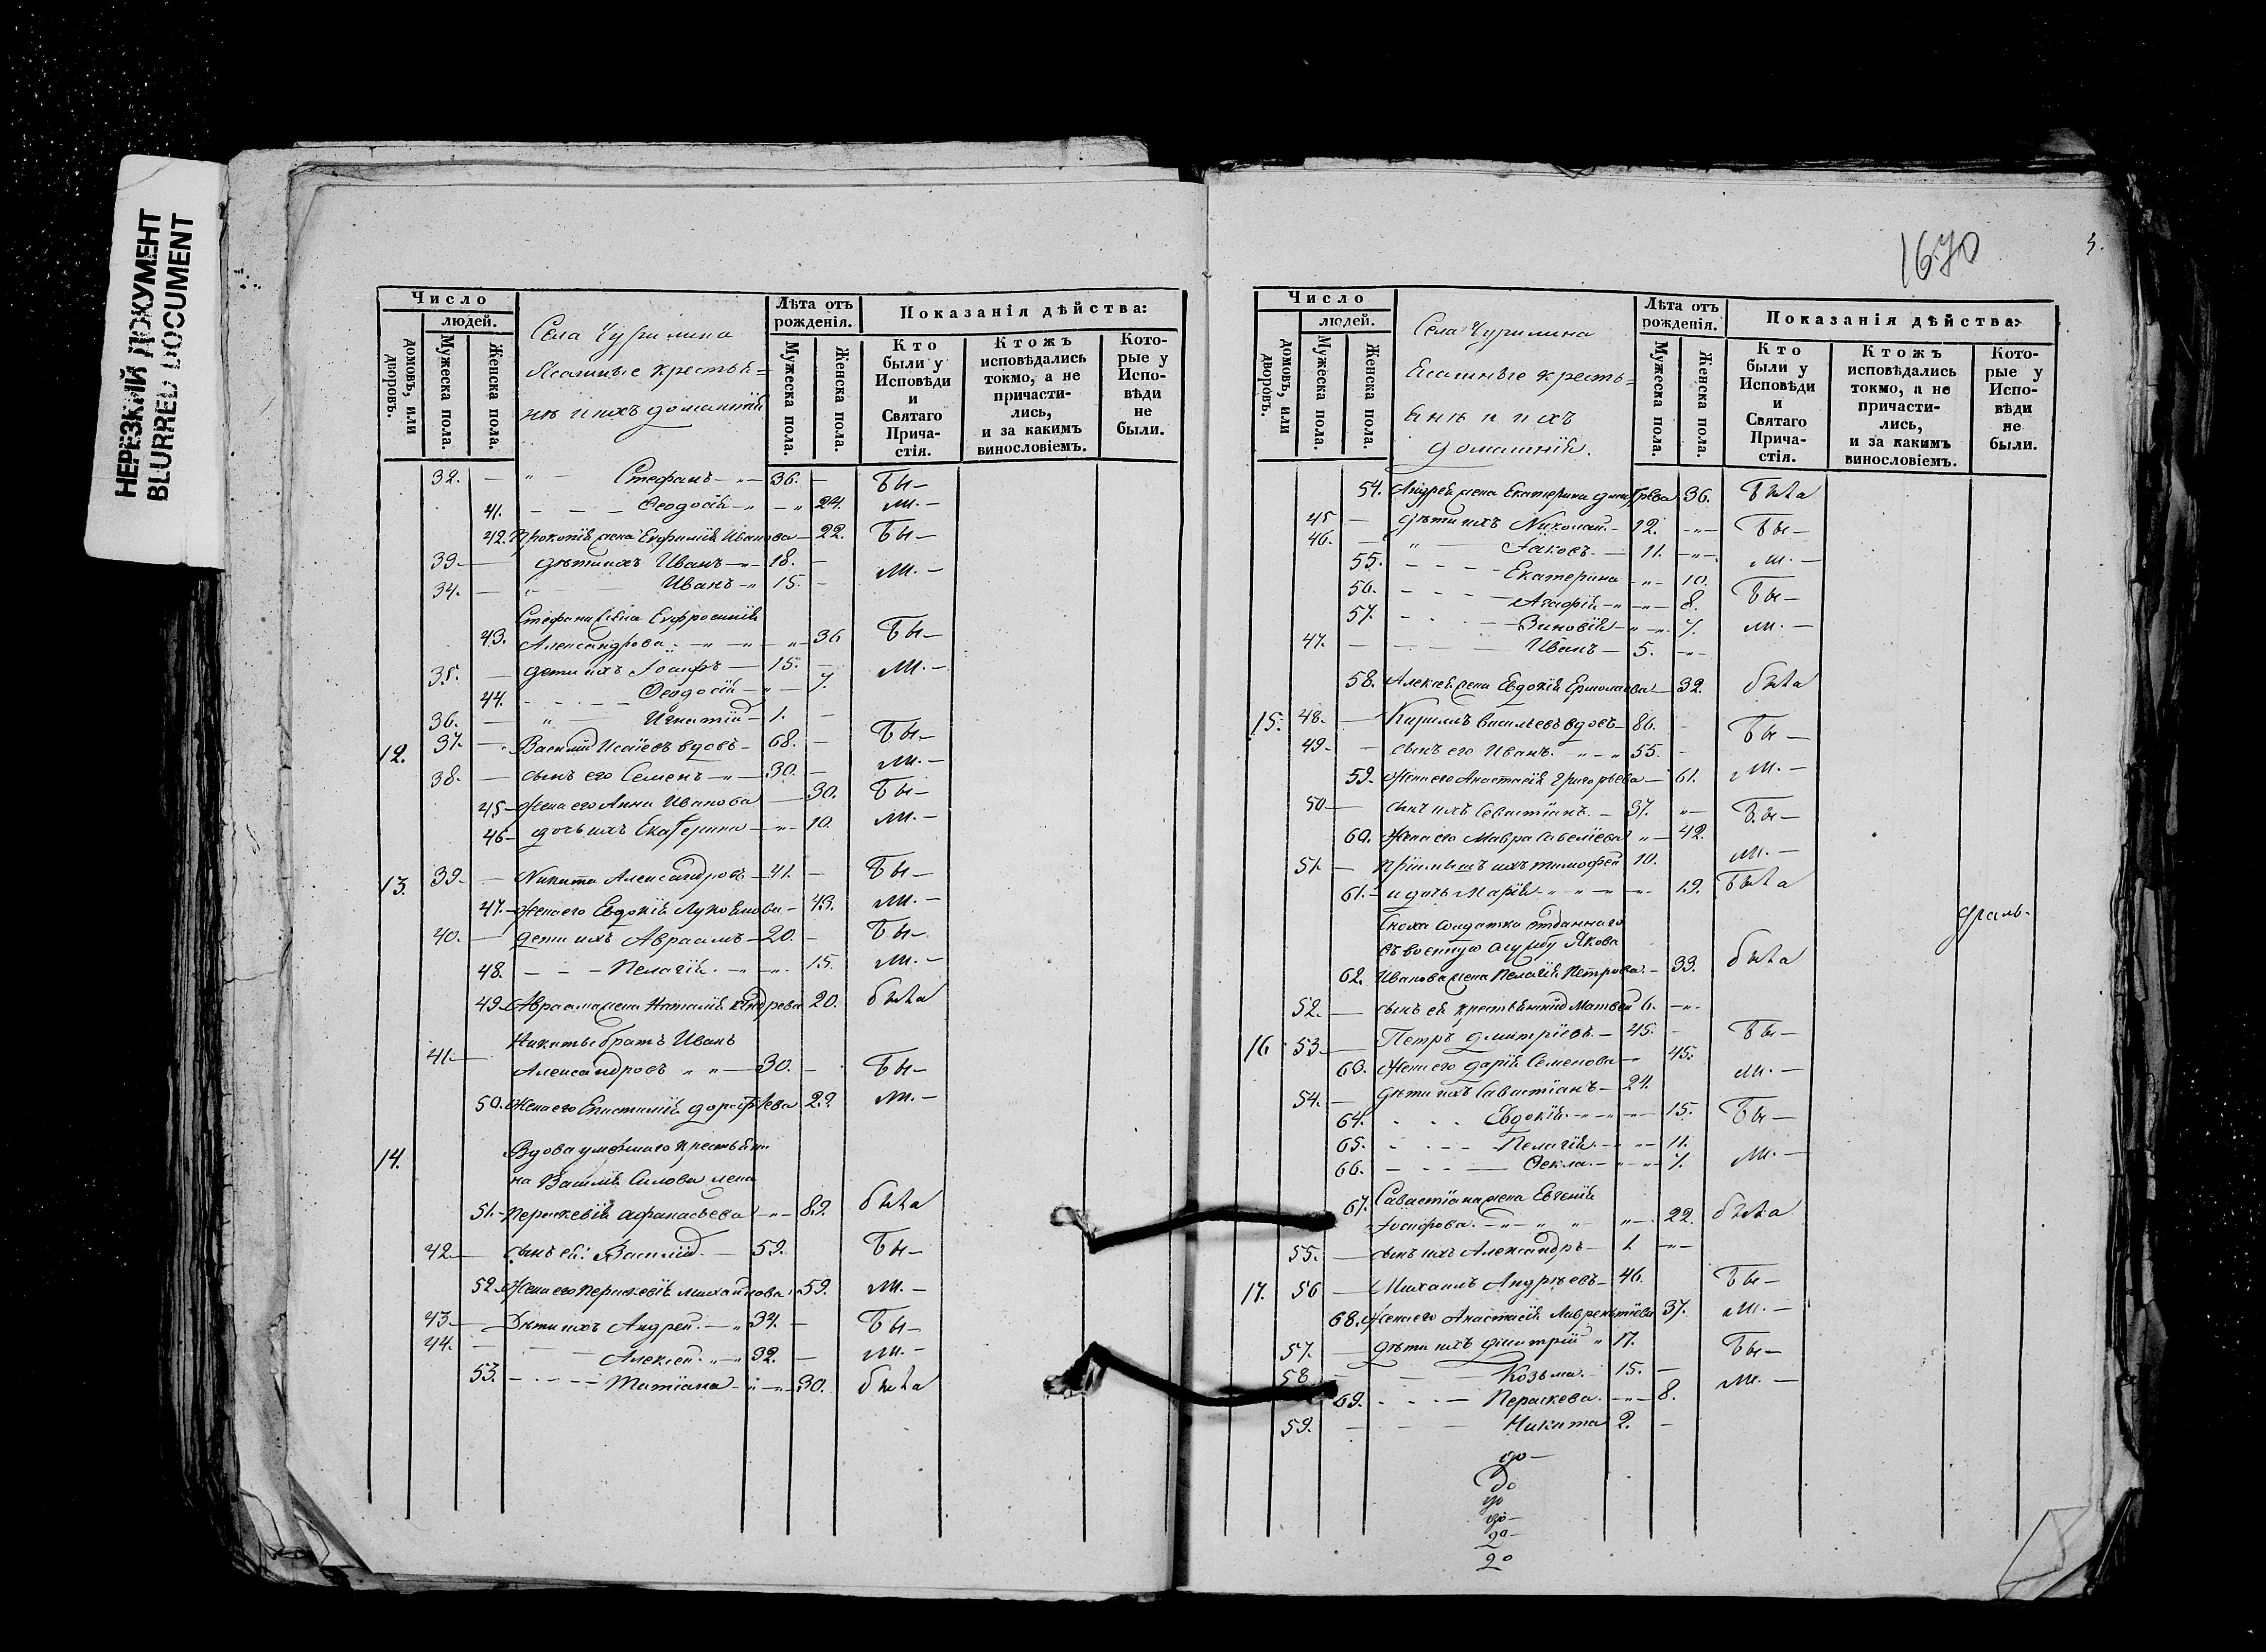 НЕРЕЗКИЙ ДОКУМЕНТ
BLURRED DOCUMENT
Число
людей.
домовъ, или дворовъ.
Мужеска пола.
Женска пола.
Села Чурилина
Ясашные крестья=
не и ихъ домашнія
Лѣта отъ рожденія.
Мужеска пола.
Женска пола.
Показанія дѣйства:
Кто были у Исповѣди и Святаго Прича-стія.
Ктожъ исповѣдались токмо, а не причасти-лись, и за какимъ винословіемъ.
Кото-рые у Испо-вѣди не были.
32. — " — Стефанъ — " — 36. — Бы—
41. — — — Ѳеодосія — " — " 24. ли. —
42. Прокопія жена Евфимія Иванова — 22. Бы—
33. — дѣти ихъ Иванъ — " — 18. —
34. — " Иванъ — " 15. — ли. —
Стефана жена Евфросинія
43. Александрова — " — " — " — 36 Бы—
35. — дети ихъ Іосифъ — 15. — ли. —
44. — — — Ѳеодосія — " — 7.
36. — " — Игнатій — 1. —
12. 37. — Василій Исаіевъ вдовъ — 68. — Бы—
38. — сынъ его Семенъ — " — 30. — ли. —
45 — Жена его Анна Иванова — 30. Бы—
46 — дочь ихъ Екатерина — " — 10. ли. —
13. 39. — Никита Александровъ — 41. — Бы—
47. — Жена его Евдокія — 43. ли. —
40. — дети ихъ Авраамъ — 20. — Бы—
48. — — — Пелагія. — " — " 15. ли. —
49. Авраама жена Наталія Андрева 20. была
Никиты братъ Иванъ
41. — Александровъ " " — 30. — Бы—
50. Жена его 29. ли. —
14. Вдова умершаго крестьяни
на жена
51. — Перасковія Афанасьева — " — 89. была
42 — сынъ ея: Василій. — 59. Бы—
52. Жена его Перасковія Михайлова 59. ли. —
43 — Дѣти ихъ Андрей. — " 34. — Бы—
44. — — — Алексей. " — " 32. — ли. —
53. — — — Татіана — " — " 30. была
1670
3.
Число
людей.
домовъ, или дворовъ.
Мужеска пола.
Женска пола.
Села Чурилина
Ясашныѣ кресть=
янѣ и ихъ
домашнія.
Лѣта отъ рожденія.
Мужеска пола.
Женска пола.
Показанія дѣйства:
Кто были у Исповѣди и Святаго Прича-стія.
Ктожъ исповѣдались токмо, а не причасти-лись, и за какимъ винословіемъ.
Кото-рые у Испо-вѣди не были.
54. Андрея жена Екатерина Дмитрѣва 36. Была
45 — дѣти ихъ Николай. — 12. — " — Бы—
46. — " — Іаковъ. — 11. — " — ли. —
55. — — — Екатерина — " — 10.
56. — — — Агафія — " — " — 8. Бы—
57. — — — Зиновія — " — " — 7. ли. —
47. — — — Иванъ — 5. — " —
58. Алексея жена Евдокія Ермолаева — 32. была
15. 48. — Кирилъ Васильевъ вдовъ — 86. — Бы—
49. — сынъ его Иванъ. — " — " 55. —
59. Жена его Анастасія Григорьева — 61. ли. —
50 — сынъ ихъ Севастіанъ. — 37. " — Бы—
60. Жена его Мавра Савеліева " — 42.
51. — пріимышъ ихъ Тимофей 10. ли. —
61. — и дочь Марія — " — " — " — 19. Была
Сноха солдатка отданнаго
въ военную службу Якова
62. Иванова жена Пелагія Петрова. — 33. была
52. — сынъ ея крестьянинъ Матвей 6. — " —
16 53 — Петръ Дмитріевъ. — 45. — Бы—
63. Жена его Дарія Семенова — " 45. ли. —
54. — Дѣти ихъ Савастіанъ — 24.
64. — — — Евдокія. — " — " — " 15. Бы—
65. — — — Пелагія. — " — " 11.
66. — — — Ѳекла. — " — " 7. ли. —
Савастіана жена Евгенія
67. Іосифова. — " — " " — 22. была
55. — сынъ ихъ Александръ — 1. — " —
17. 56 — Михаилъ Андрѣевъ — 46. Бы—
68. Жена его Анастасія Лаврентіева 37. ли. —
57. — Дѣти ихъ Димитрій " 17. Бы—
58 — — — Козьма. — 15. —
69. — — — Пераскева. — " — 8. ли. —
59. — — — Никита 2. —